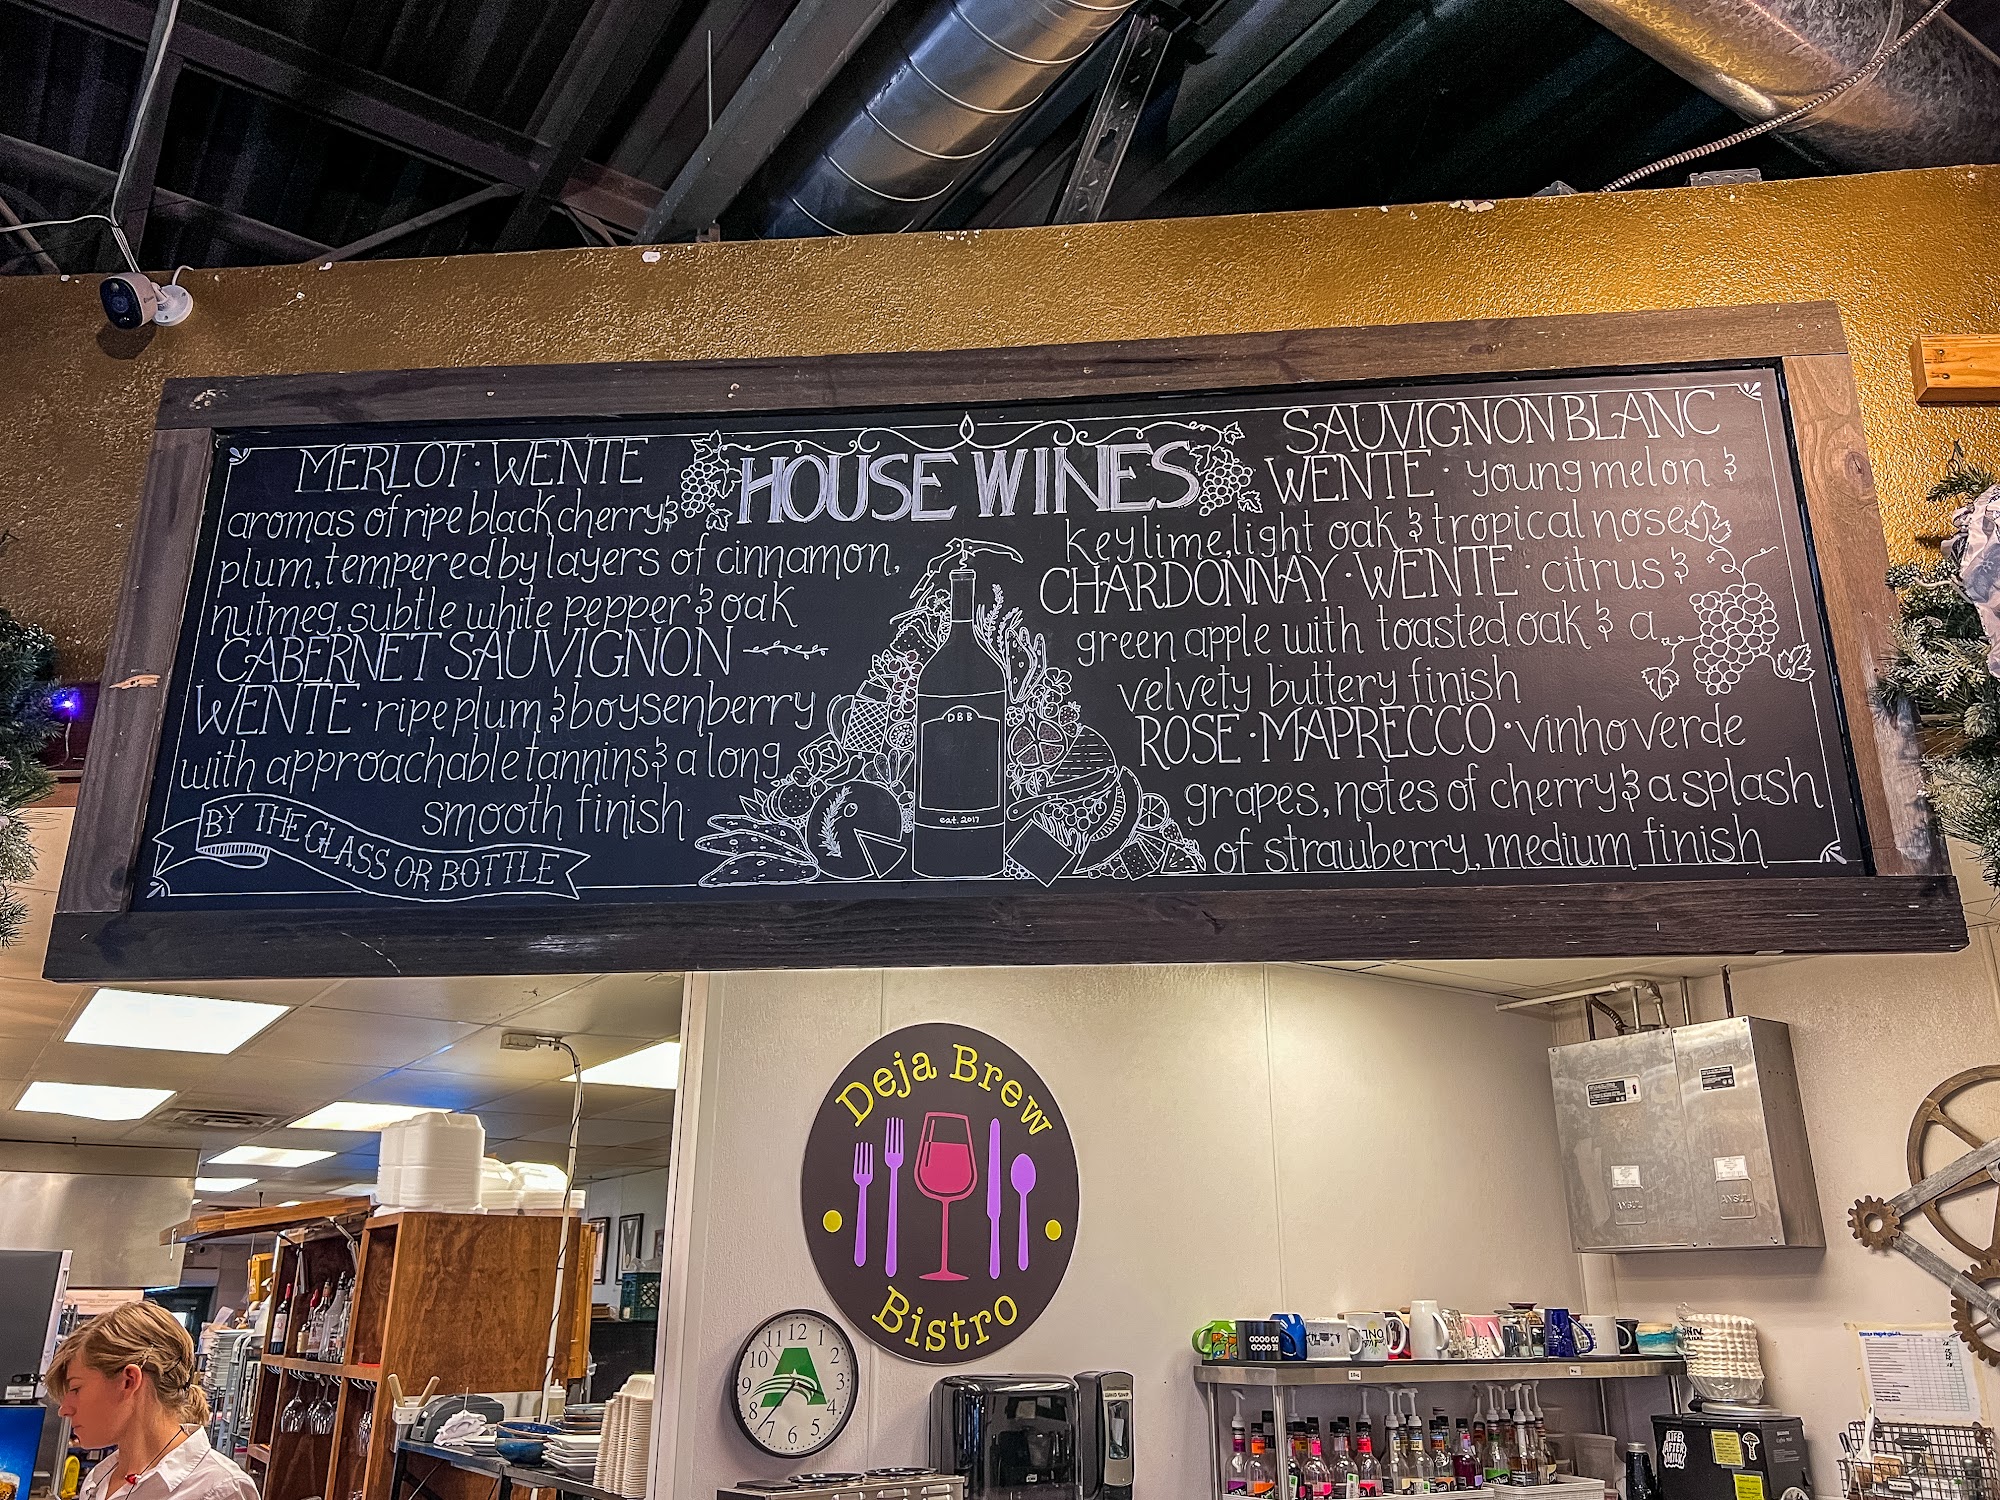 HOUSE WINES
MERLOT · WENTE
aromas of ripe black cherry &
plum, tempered by layers of cinnamon,
nutmeg, subtle white pepper & oak
CABERNET SAUVIGNON
WENTE · ripe plum & boysenberry
with approachable tannins & a long
smooth finish
BY THE GLASS OR BOTTLE
DBB
est. 2017
SAUVIGNON BLANC
WENTE · young melon &
key lime, light oak & tropical nose
CHARDONNAY · WENTE · citrus &
green apple with toasted oak & a
velvety buttery finish
ROSE · MAPRECCO · vinho verde
grapes, notes of cherry & a splash
of strawberry, medium finish
Deja Brew
Bistro
12
1
2
3
4
5
6
7
8
9
10
11
ANSUL
ANSUL
LIFE
AFTER